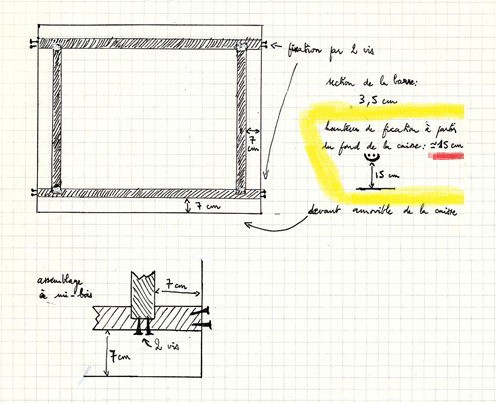 fixation par 2 vis
section de la barre:
3,5 cm
hauteur de fixation à partir
du fond de la caisse: ≃ 15 cm
15 cm
7
cm
7 cm
devant amovible de la caisse
assemblage
à mi-bois
7 cm
2 vis
7 cm